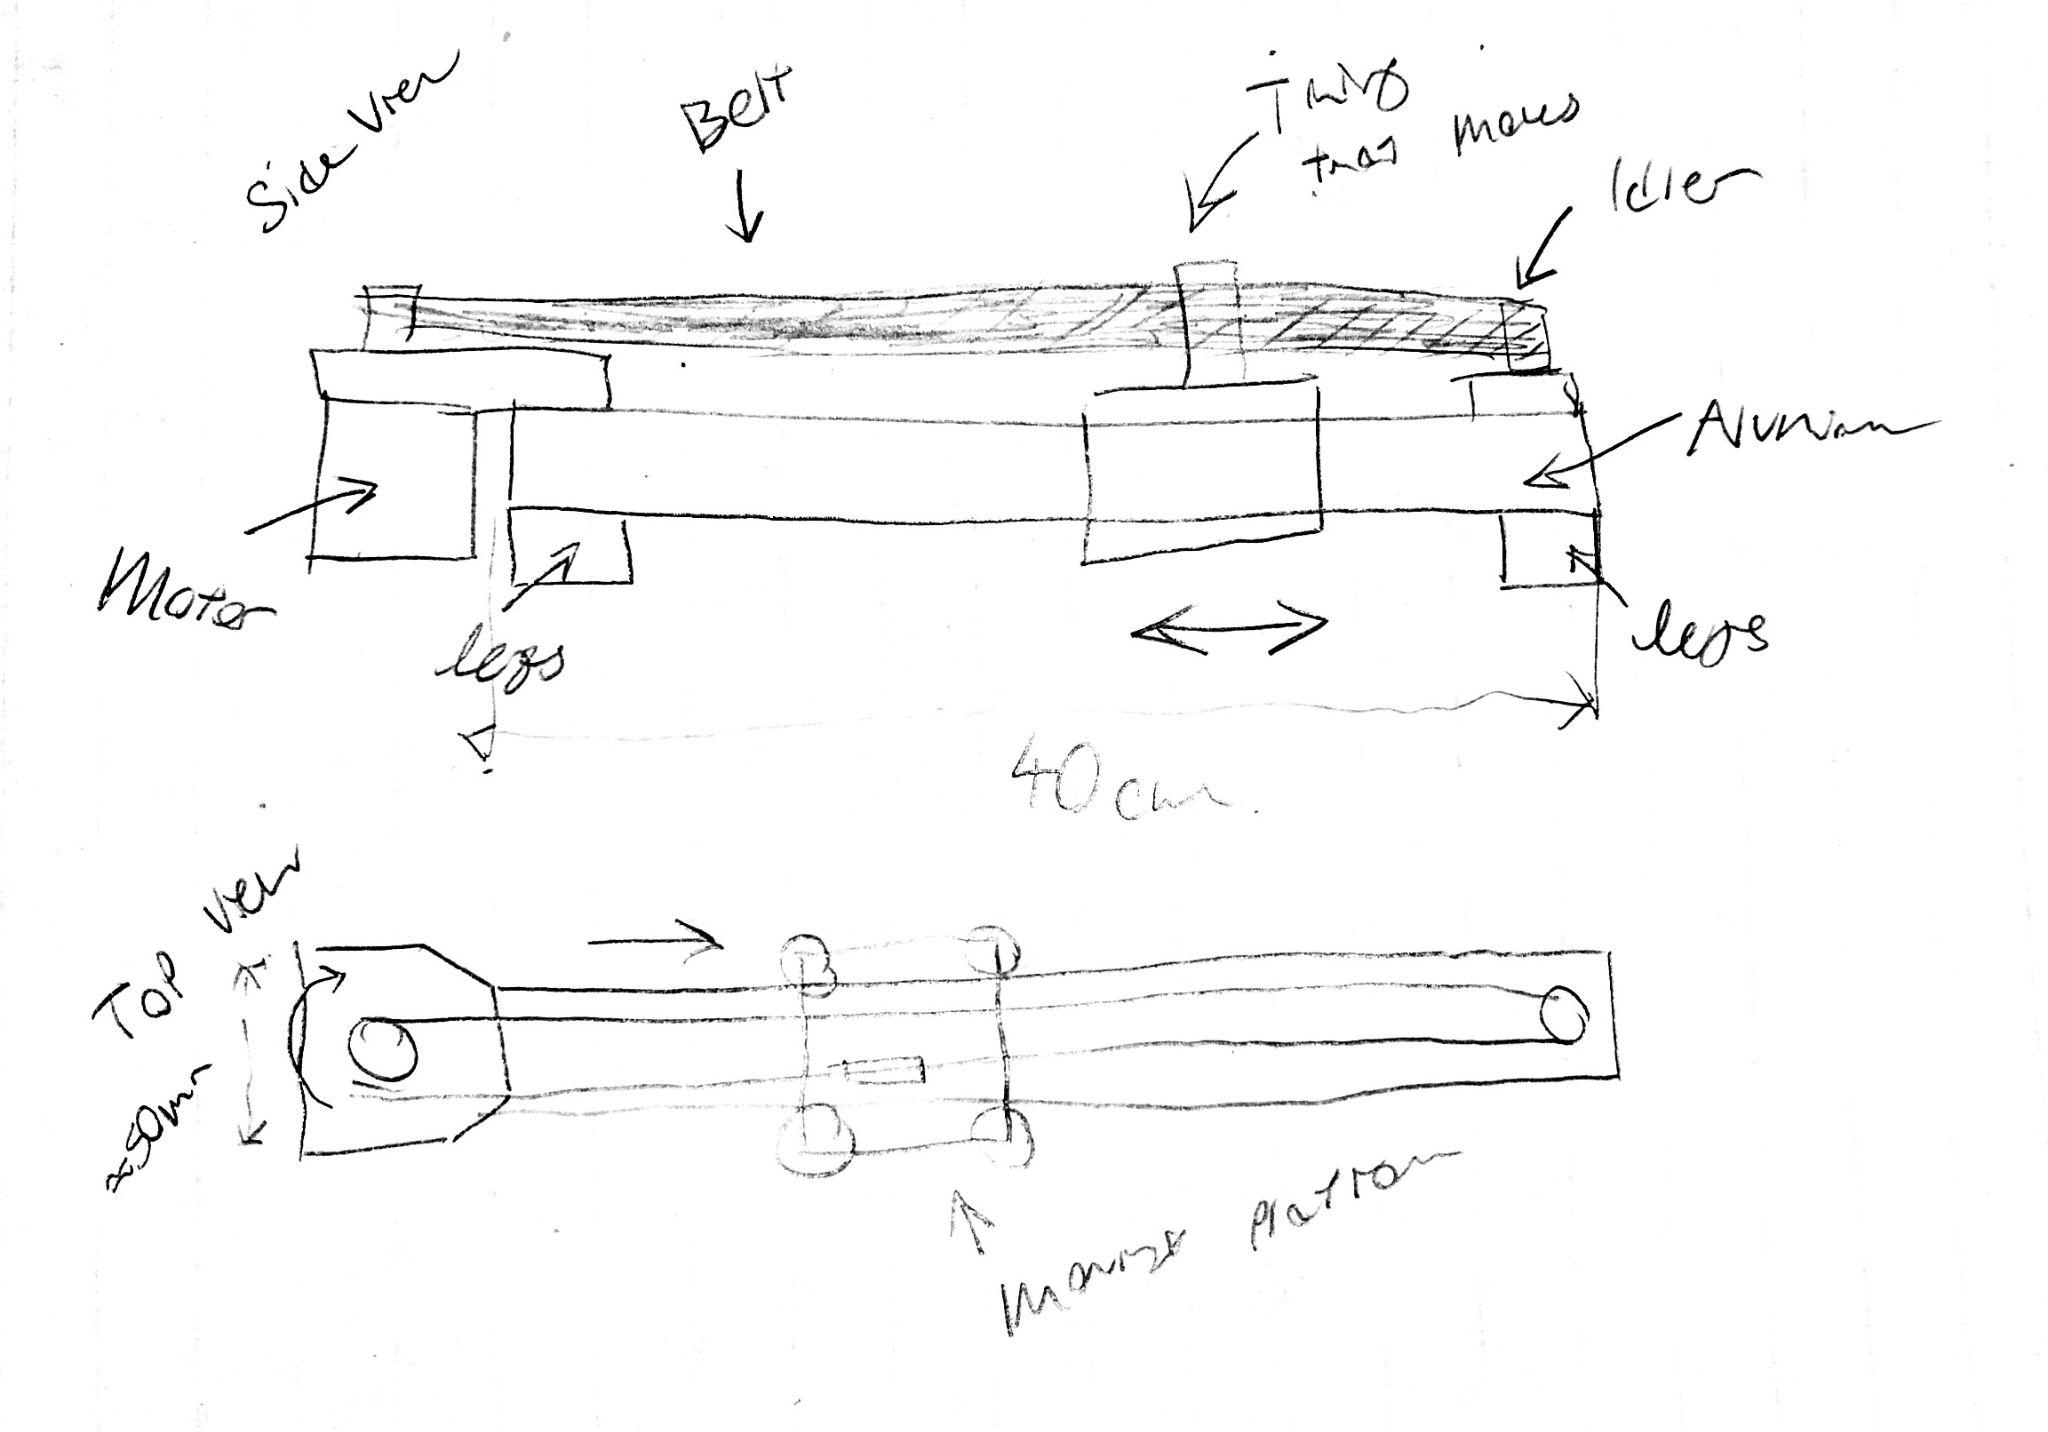 Side View
Belt
Thing
that moves
Idler
Aluminum
Motor
legs
legs
40cm
Top View
≈50mm
Moving Platform